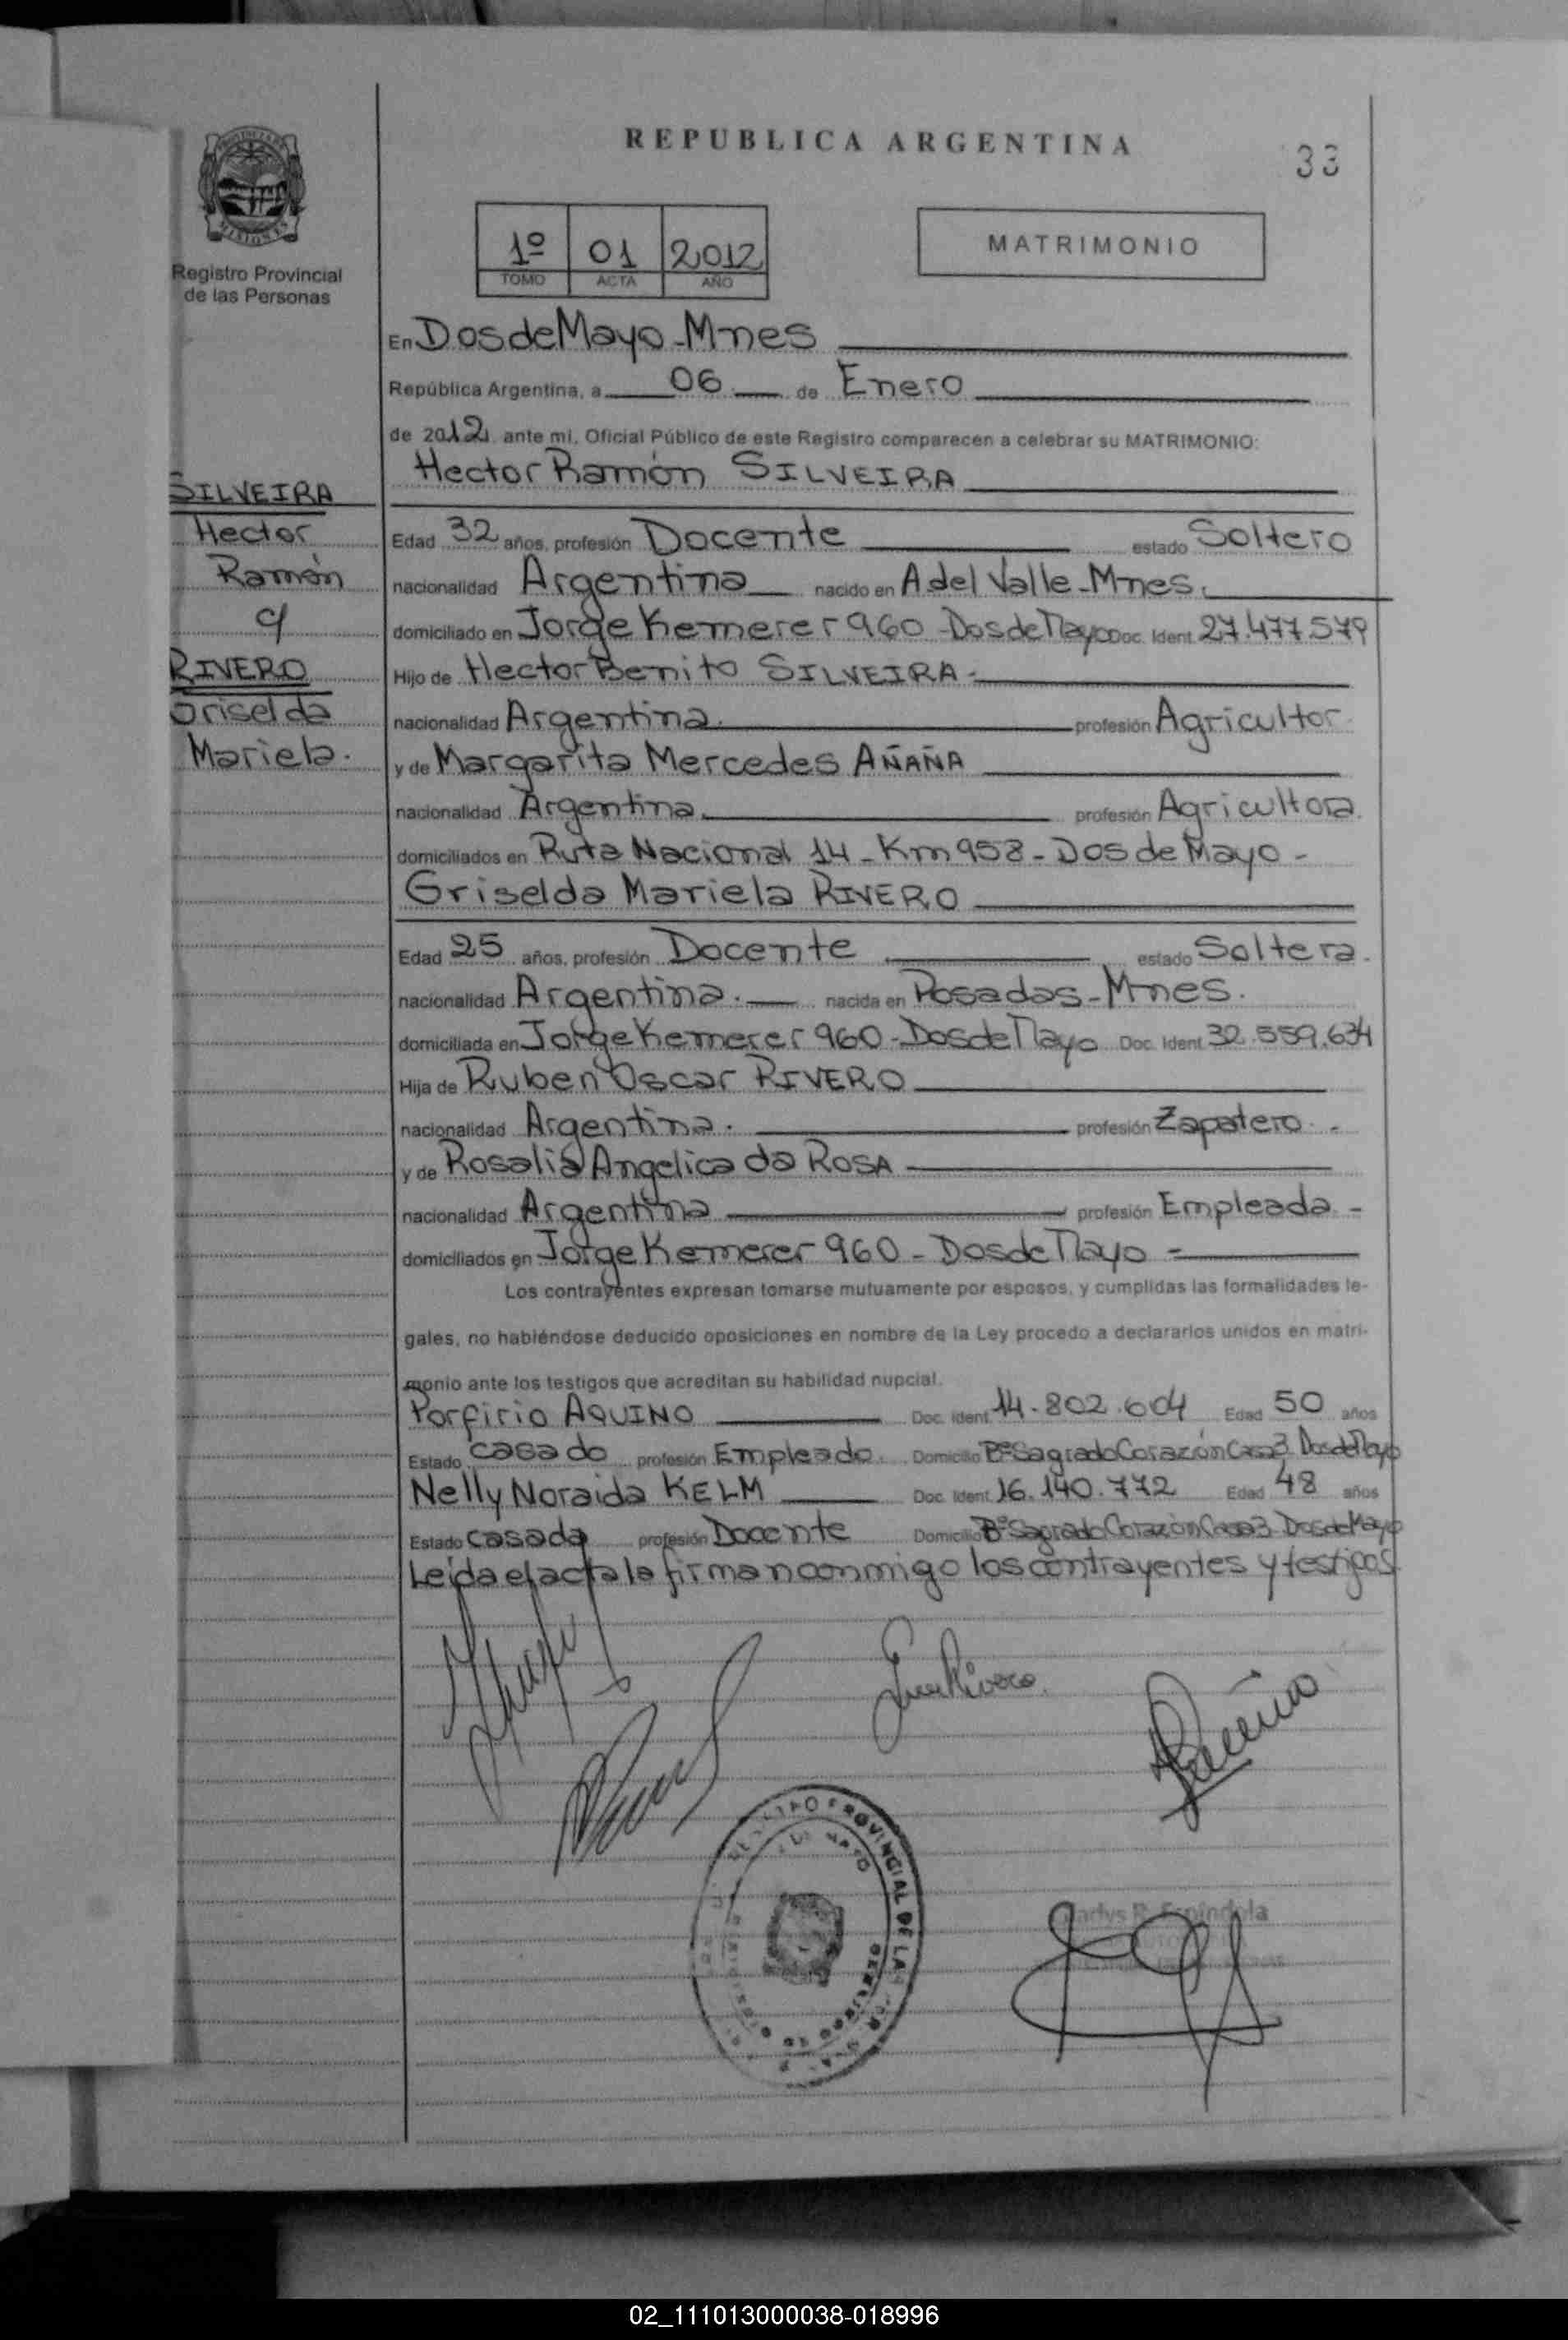 REPUBLICA ARGENTINA
33
PROVINCIA
MISIONES
Registro Provincial
de las Personas
1º 01 2012
TOMO ACTA AÑO
MATRIMONIO
En Dos de Mayo - Mnes
República Argentina, a 06 de Enero
de 2012 ante mi, Oficial Público de este Registro comparecen a celebrar su MATRIMONIO:
Hector Ramón SILVEIRA
SILVEIRA
Hector
Ramón
c/
RIVERO
Griselda
Mariela.
Edad 32 años, profesión Docente estado Soltero
nacionalidad Argentina nacido en A del Valle - Mnes.
domiciliado en Jorge Kemerer 960 - Dos de Mayo Doc. Ident. 27.477.579
Hijo de Hector Benito SILVEIRA -
nacionalidad Argentina. profesión Agricultor
y de Margarita Mercedes AÑAÑA
nacionalidad Argentina. profesión Agricultora.
domiciliados en Ruta Nacional 14 - Km 958 - Dos de Mayo -
Griselda Mariela RIVERO
Edad 25 años, profesión Docente estado Soltera.
nacionalidad Argentina. nacida en Posadas - Mnes.
domiciliada en Jorge Kemerer 960 - Dos de Mayo Doc. Ident. 32.559.634
Hija de Ruben Oscar RIVERO
nacionalidad Argentina. profesión Zapatero. -
y de Rosalia Angelica da ROSA
nacionalidad Argentina profesión Empleada. -
domiciliados en Jorge Kemerer 960 - Dos de Mayo -
Los contrayentes expresan tomarse mutuamente por esposos, y cumplidas las formalidades le-
gales, no habiéndose deducido oposiciones en nombre de la Ley procedo a declararlos unidos en matri-
monio ante los testigos que acreditan su habilidad nupcial.
Porfirio AQUINO Doc. Ident. 14.802.604 Edad 50 años
Estado casado profesión Empleado. Domicilio Bº Sagrado Corazón Casa 3 Dos de Mayo
Nelly Noraida KELM Doc. Ident. 16.140.772 Edad 48 años
Estado casada profesión Docente Domicilio Bº Sagrado Corazón Casa 3 Dos de Mayo
Leída el acta la firman conmigo los contrayentes y testigos
Rivero
PROVINCIAL DE LA
Gladys R. Espíndola
02_111013000038-018996